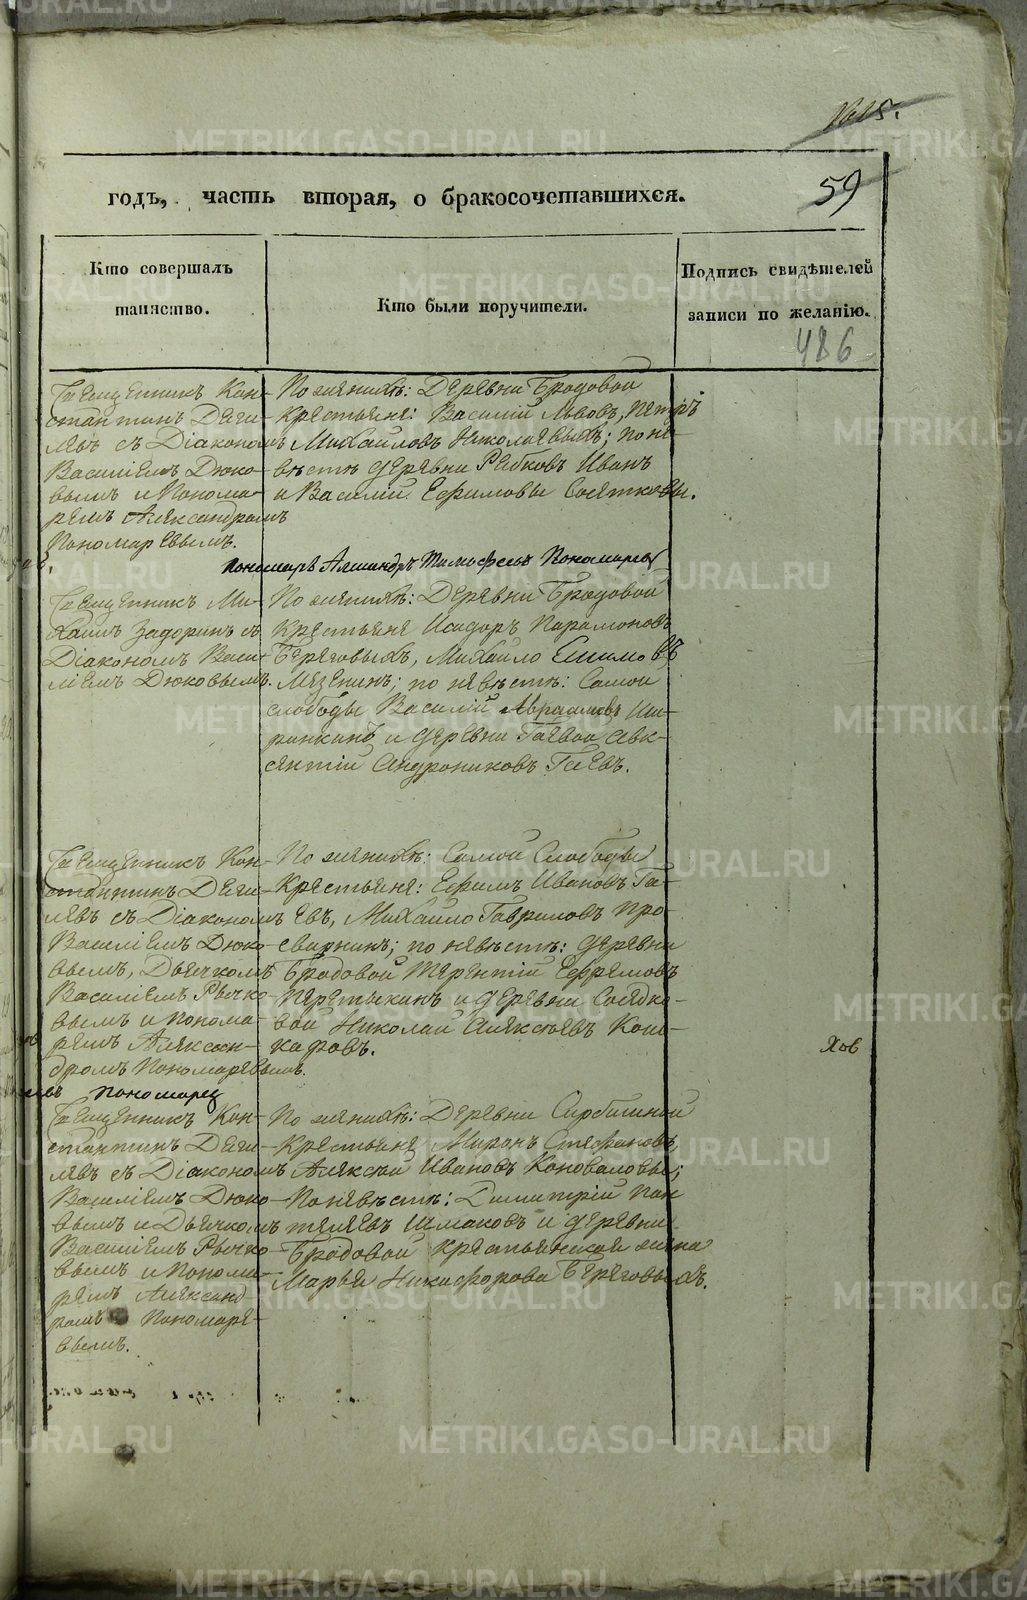 1615.
59
годъ, часть вторая, о бракосочетавшихся.
Кто совершалъ
таинство.
Кто были поручители.
Подпись свидѣтелей
записи по желанію.
486
Священникъ Кон-
стантинъ Деги-
левъ съ Діакономъ
Василіемъ Дюко-
вымъ и Понома-
ремъ Александромъ
Пономаревымъ.
По женихѣ: Деревни Бродовой
Крестьяне: Василій Львовъ, Петръ
Михайловъ Николаевыхъ; по не-
вѣстѣ деревни Рябковъ Иванъ
и Василій Ефимовы
Пономарь Александръ Тимофеевъ Пономаревъ
Священникъ Ми-
хаилъ Задоринъ съ
Діакономъ Васи-
ліемъ Дюковымъ.
По женихѣ: Деревни Бродовой
Крестьяне Исидоръ Парамоновъ
Береговыхъ, Михайло
Мезенинъ; по невѣстѣ: Самой
слободы Василій Авраамовъ Ши-
ринкинъ и деревни Гаевой Авк-
сентій Андрониковъ Гаевъ.
Священникъ Кон-
стантинъ Деги-
левъ съ Діакономъ
Василіемъ Дюко-
вымъ, Дьячкомъ
Василіемъ Рычко-
вымъ и понома-
ремъ Алексан-
дромъ Пономаревымъ.
По женихѣ: Самой Слободы
Крестьяне: Ефимъ Ивановъ Га-
евъ, Михайло Гавриловъ Про-
свирнинъ; по невѣстѣ: деревни
Бродовой Терентій Ефремовъ
Перетыкинъ и деревни
вой Николай Алексѣевъ Кош-
каровъ.
ховъ
Пономарев
Священникъ Кон-
стантинъ Деги-
левъ съ Діакономъ
Василіемъ Дюко-
вымъ и Дьячкомъ
Василіемъ Рычко-
вымъ и Понома-
ремъ Александ-
ромъ Пономаре-
вымъ.
По женихѣ: Деревни
Крестьяне Миронъ Стефановъ,
Алексѣй Ивановъ Коноваловы;
По невѣстѣ: Димитрій Пан-
телеевъ Шмаковъ и деревни
Бродовой крестьянская жена
Марья Никифорова Береговыхъ.
METRIKI.GASO-URAL.RU